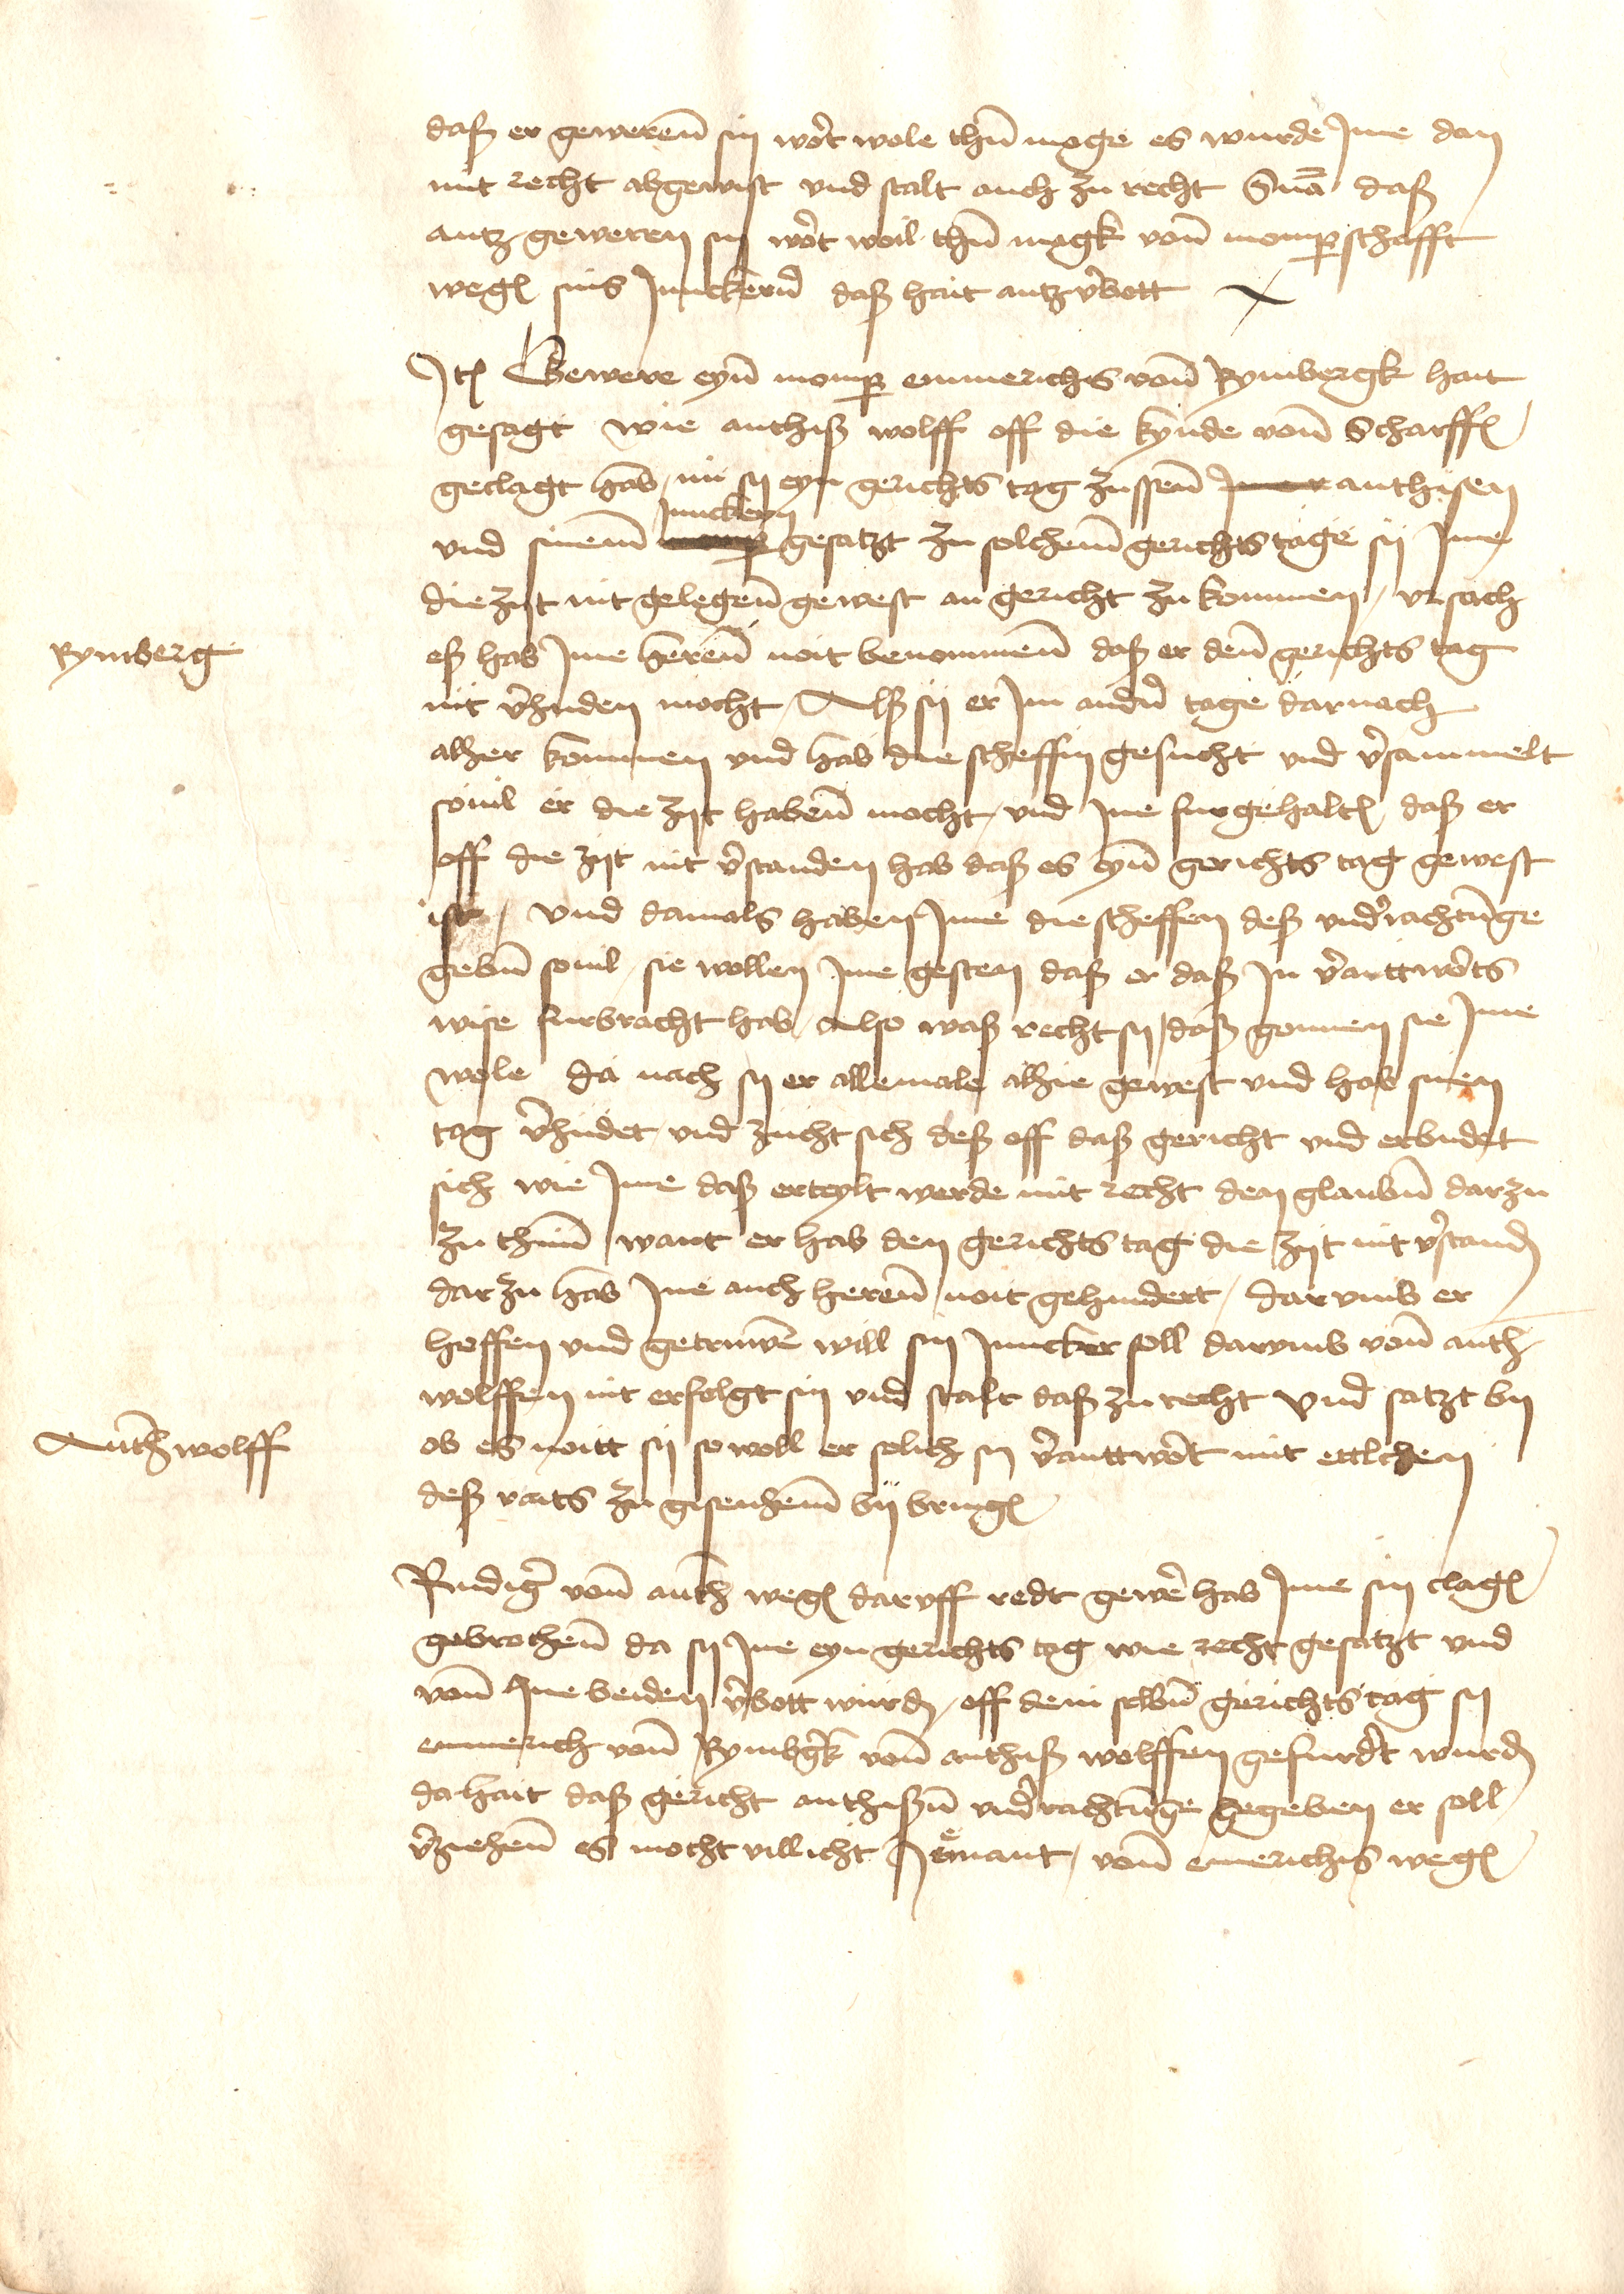 daß er geweren̄ sin wōrt wole thūn moge es wurde Ime dan
mit recht abgewist vnd stalt auch zu recht S̄n̄a daß
antz geweren sin wōrt woil thūn magk von̄ momp̱schafft
weg(e) sins Junckern̄ daß hait antz v̄bott
It(em) Gewere eyn̄ momp̱ emmerichs von̄ Rymbergk hait
gesagt wie anthiß wolff off die kynde von̄ Scharff(e)
geclagt hab, nu sy eyn gerichts tag zussen̄ anthisen
Junckern
vnd sinem̄ gesatzt zu solchem̄ gerichts tage sij Ime
die zijt nit gelegen̄ gewest an gericht zu kommen, vrsach
Rymberg
eß hab Ime heren̄ noit benommen̄ daß er den̄ gerichts tag
nit v̄huden mocht, Alß sij er Im andn̄ tage darnach
alher kommen vnd hab die scheffin gesucht vnd v̄sammelt
souil er die zijt haben̄ mocht, vnd Ine furgehalt(en) daß er
off die zijt nit v̄standen hab daß es eyn̄ gerichts tag gewest
ist, vnd damals haben Ime die scheffen deß vnd̄rachtūnge
gebn̄ souil, sie wollen Ime gesten daß er daß In v̄anttwōrts
wise furbracht hab, also waß recht sy daß gonnen sie Ime
wole da nach sy er allemale alhie gewest vnd hab sinen
tag v̄hudet, vnd zucht sich deß off daß gericht vnd erbudet
sich wie Ime daß erteylt werde mit recht den glaubn̄ darzu
zu thun̄ want er hab den gerichts tag die zijt nit v̄stand(en)
dar zu hab Ine auch heren̄ noit gehindert, dar vmb er
hoffen vnd getruwē will sin Juncker soll darvmb von̄ anth̄
wolffen nit erfolgt sin vnd stalt daß zu recht vnd satzt by
Anth̄ wolff
ob es noitt sij so woll er solich sy v̄anttwōrt mit ettlchen
deß raits zu gysenhem̄ bij bring(en)
Rudiḡ von̄ anth̄ weg(e) daruff redt gewē hab Ime sin clag(e)
gebrochen̄ da sy Ine eyn gerichts tag wie recht gesatzt vnd
von̄ Ine beiden v̄bott wurd(en), off dem selbn̄ gerichts tag sy
emmerich von̄ Rymbḡk von̄ anthiß wolffen gefurd̄t wurd(en)
da hait daß gericht anthisen̄ vnd̄rachtūnge gegeben er soll
v̄ziehen̄ es mocht villicht Jemant, von̄ emerichs weg(e)